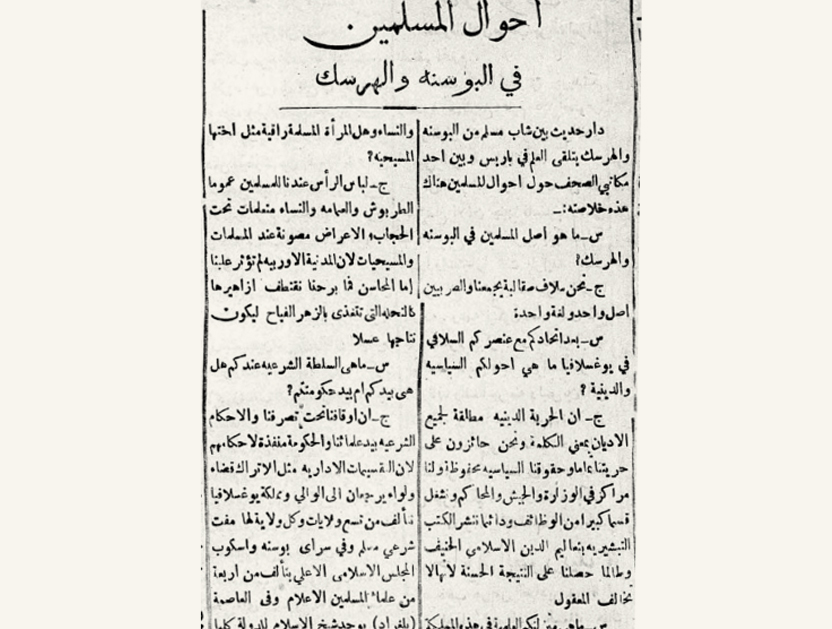 أحوال المسلمين
في البوسنه والهرسك
دار حديث بين شاب مسلم من البوسنه
والهرسك يتلقى العلم في باريس وبين احد
مكاتبي الصحف حول احوال المسلمين هناك
هذه خلاصته:ـ
س ـ ما هو اصل المسلمين في البوسنه
والهرسك؟
ج ـ نحن سلاف صقالبة يجمعنا والصربيين
اصل واحد ولغة واحدة
س ـ بعد اتحادكم مع عنصركم السلافي
في يوغسلافيا ما هي احولكم السياسيه
والدينية ؟
ج ـ ان الحرية الدينيه مطلقة لجميع
الاديان بمعنى الكلمة ونحن حائزون على
حريتنا تماما وحقوقنا السياسيه محفوظة ولنا
مراكز في الوزارة والجيش والمحاكم ونشغل
قسما كبيرا من الوظائف ودائما ننشر الكتب
التبشيريه بتعاليم الدين الاسلامي الحنيف
وطالما حصلنا على النتيجة الحسنة لانها لا
تخالف المعقول
والنساء وهل المرأة المسلمة راقية مثل اختها
المسيحية؟
ج ـ لباس الرأس عندنا للمسلمين عموما
الطربوش والعمامه والنساء متعلمات تحت
الحجاب، الاعراض مصونة عند المسلمات
والمسيحيات لان المدنية الاوربيه لم تؤثر علينا
إما المحاسن فما برحنا نقتطف ازاهيرها
كالنحله التى تتغذى بالزهر الفياح ليكون
نتاجها عسلا
س ـ ماهى السلطة الشرعيه عندكم هل
هى بيدكم ام بيد حكومتكم؟
ج ـ ان اوقافنا تحت تصرفنا والاحكام
الشرعيه بيد علمائنا والحكومة منفذة لاحكامهم
لان التقسيمات الاداريه مثل الاتراك قضاء
ولواء يرجعان الى الوالي ومملكة يوغسلافيا
تتألف من تسع ولايات وكل ولاية لها مفت
شرعي مسلم وفي سراى بوسنه واسكوب
المجلس الاسلامى الاعلى يتألف من اربعة
من علماء المسلمين الاعلام وفى العاصمة
(بلغراد) يوجد شيخ الاسلام للدولة كلها